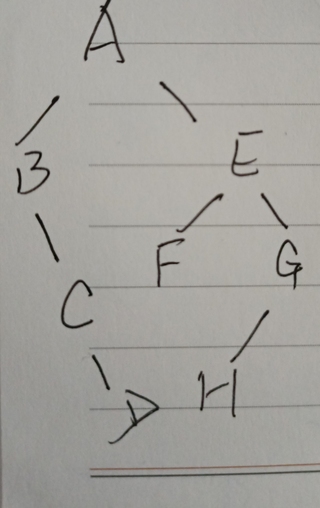 A
B E
F G
C
D H